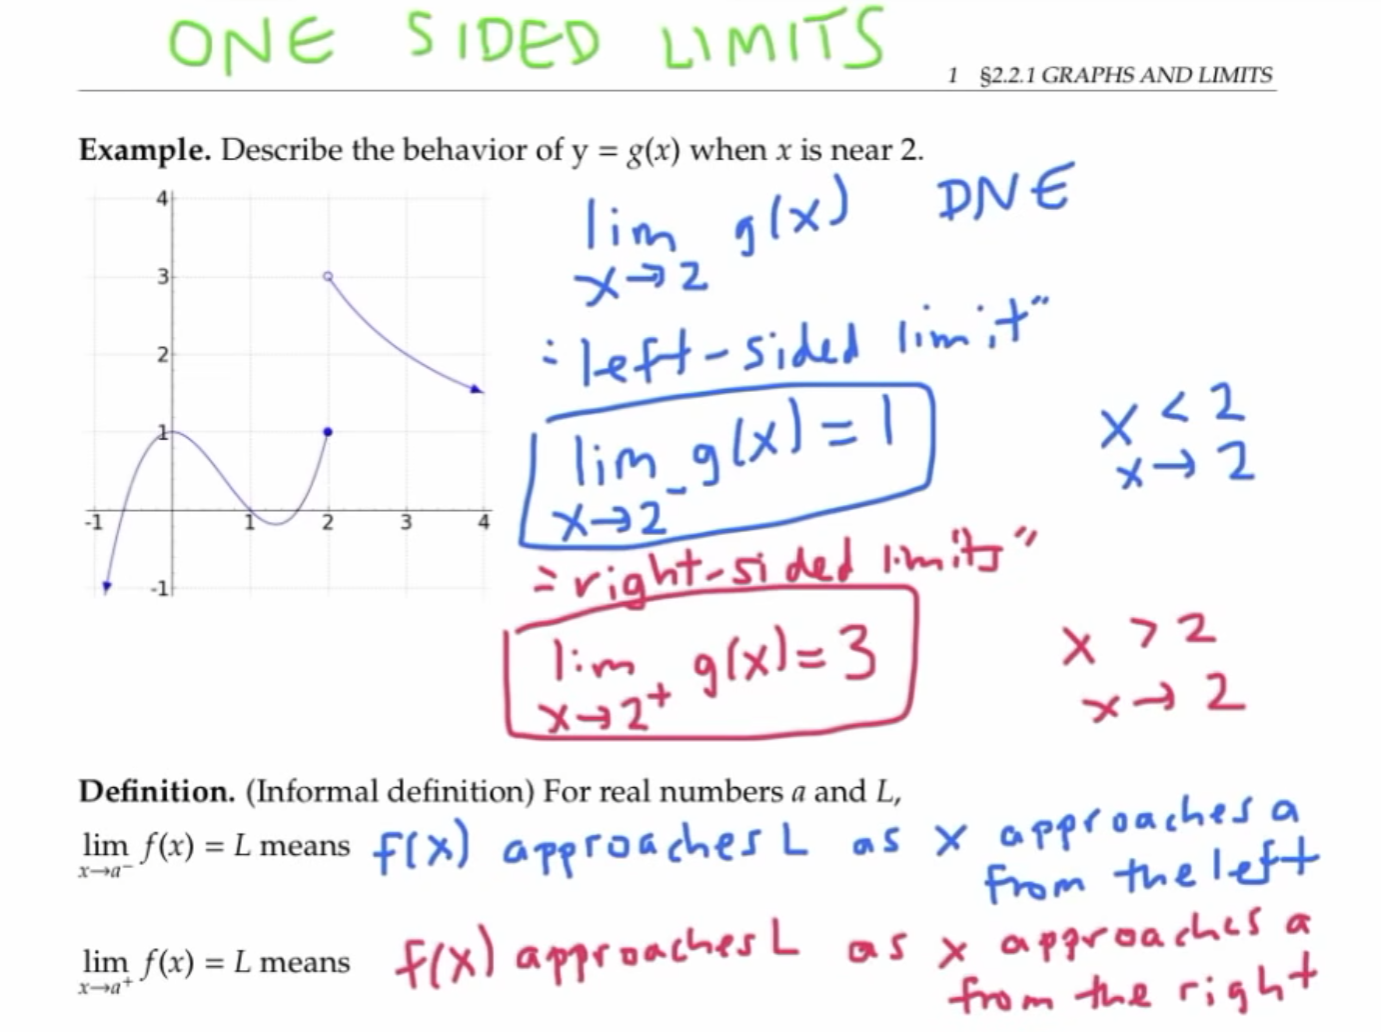 ONE SIDED LIMITS
1 §2.2.1 GRAPHS AND LIMITS
Example. Describe the behavior of y = g(x) when x is near 2.
4
3
2
1
-1
-1 1 2 3 4
lim g(x) DNE
x→2
"left-sided limit"
lim g(x) = 1
x→2⁻
x < 2
x→2
"right-sided limits"
lim g(x) = 3
x→2⁺
x > 2
x→2
Definition. (Informal definition) For real numbers a and L,
lim f(x) = L means f(x) approaches L as x approaches a
x→a⁻
from the left
lim f(x) = L means f(x) approaches L as x approaches a
x→a⁺
from the right